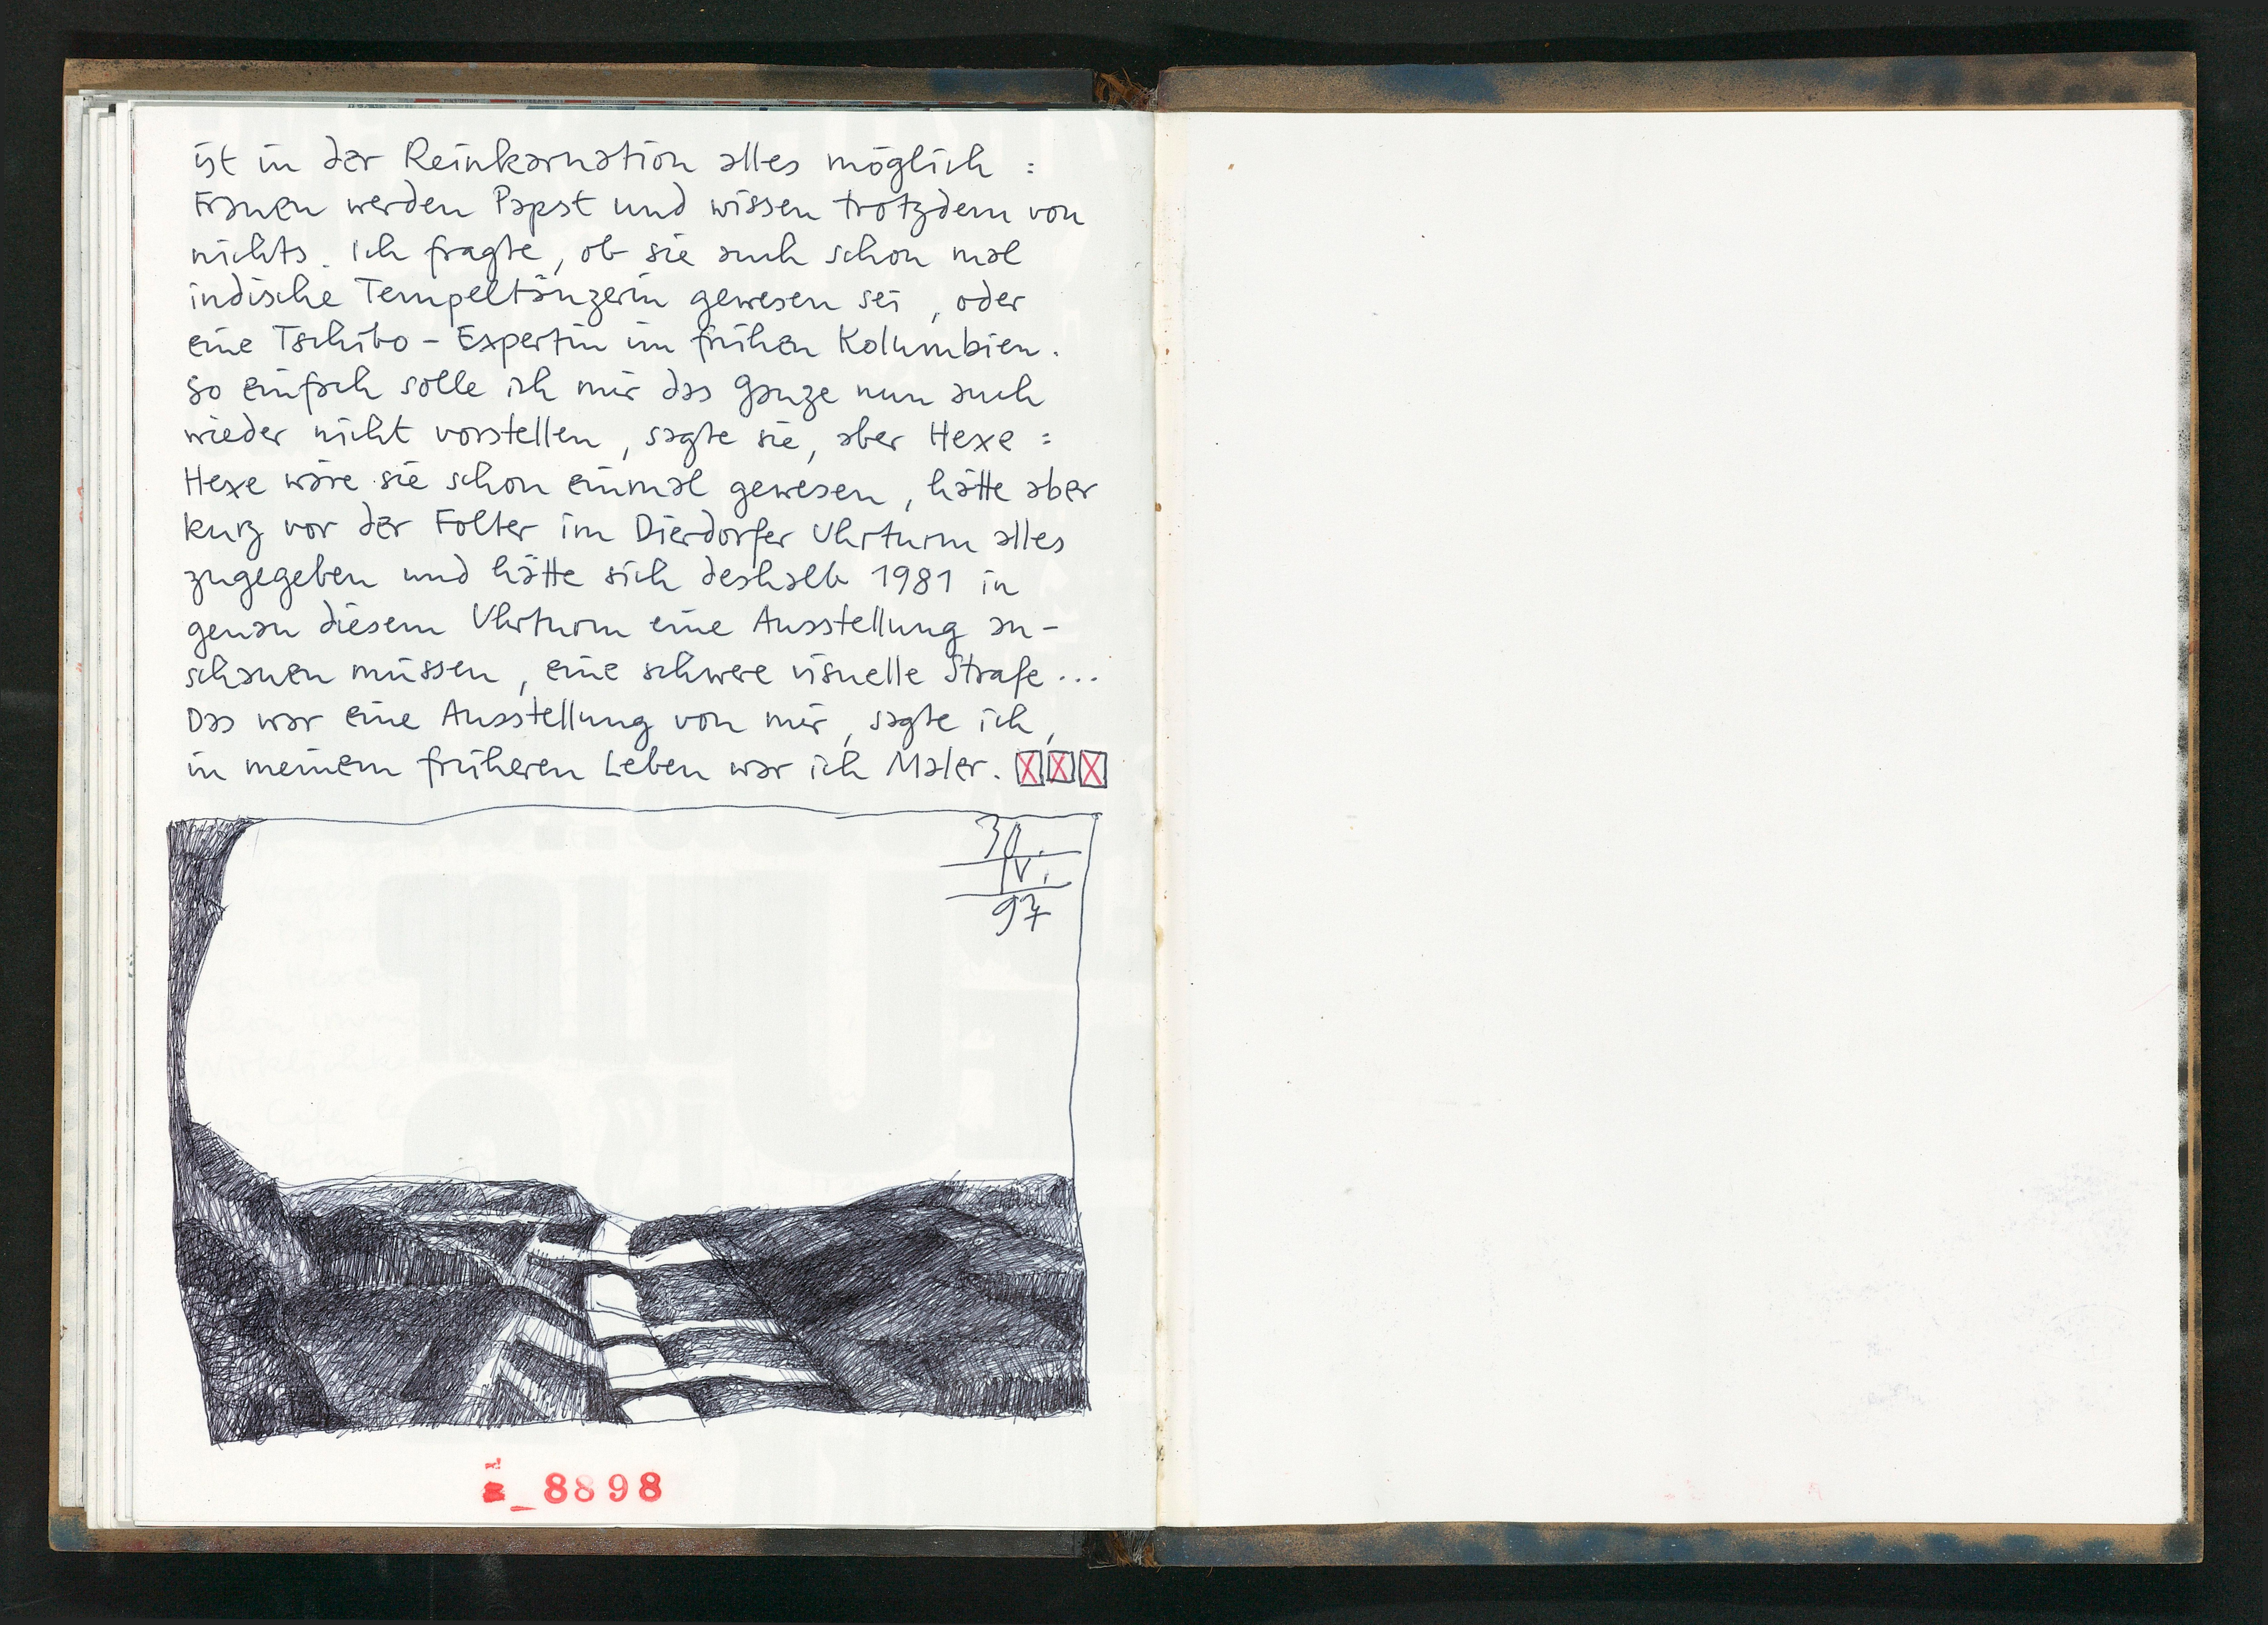 ist in der Reinkarnation alles möglich :
Frauen werden Papst und wissen trotzdem von
nichts. Ich fragte, ob sie auch schon mal
indische Tempeltänzerin gewesen sei, oder
eine Tschibo - Expertin im frühen Kolumbien.
So einfach solle ich mir das Ganze nun auch
wieder nicht vorstellen, sagte sie, aber Hexe :
Hexe wäre sie schon einmal gewesen, hätte aber
kurz vor der Folter im Dierdorfer Uhrturm alles
zugegeben und hätte sich deshalb 1981 in
genau diesem Uhrturm eine Ausstellung an-
schauen müssen, eine schwere visuelle Strafe...
Das war eine Ausstellung von mir, sagte ich,
in meinem früheren Leben war ich Maler.
30.
IV.
97
8898